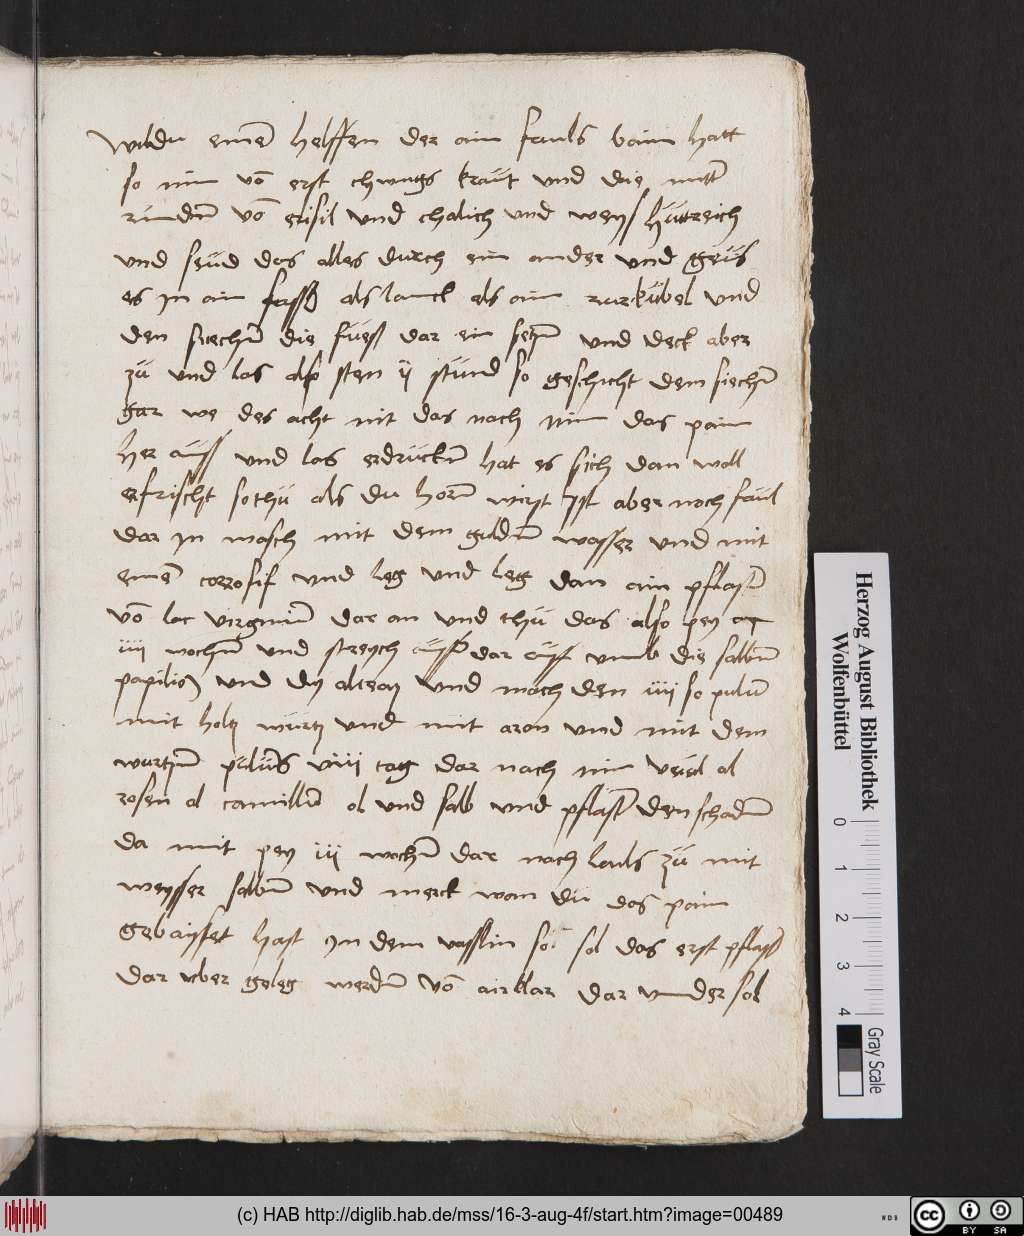 Wildu einē helffen der ain fauls bain hatt
so nim vō erst chwings kraut vnd die mittē
rindñ vō erisil vnd chalich vnd weys huttreich
vnd seud das alles durch ein ander vnd geus
es jn ain fassß als lanck als ain rurkübel vnd
den siechñ die füeß dar ein seczñ vnd deck aber
zů vnd las also sten ij stund so geschicht dem siechñ
gar we des acht nit das nach nim das pain
her auss vnd las erdruckñ hat es sich dan woll
erfrischt so thů als du horñ wirst Ist aber noch faul
dar jn wasch mit dem guldñ wasser vnd mit
einē corrosif vnd leg vnd leg dan ain pflastē
vō lac virginiū dar an vnd thů das also pey
iiii wochñ vnd streych auss dar auff vmb die salbñ
papilio vnd dy alteaȝ vnd mach den iiii so puluē
mit holcz wurcz vnd mit aron vnd mit dem
wurczñ puluēs viiii tag dar nach nim veiel ol
rosen ol camillñ ol vnd salb vnd pflastē den schadñ
da mit pey iij wochñ dar nach lauls zů mit
weysser salbñ vnd merck wan du das pain
gebaysset hast jn dem vasslin so sol das erst pflastē
dar vber geleg werdñ vō airklar dar vnnder sol
Herzog August Bibliothek
Wolfenbüttel
0 1 2 3 4
Gray Scale
(c) HAB http://diglib.hab.de/mss/16-3-aug-4f/start.htm?image=00489
WDB
cc BY SA